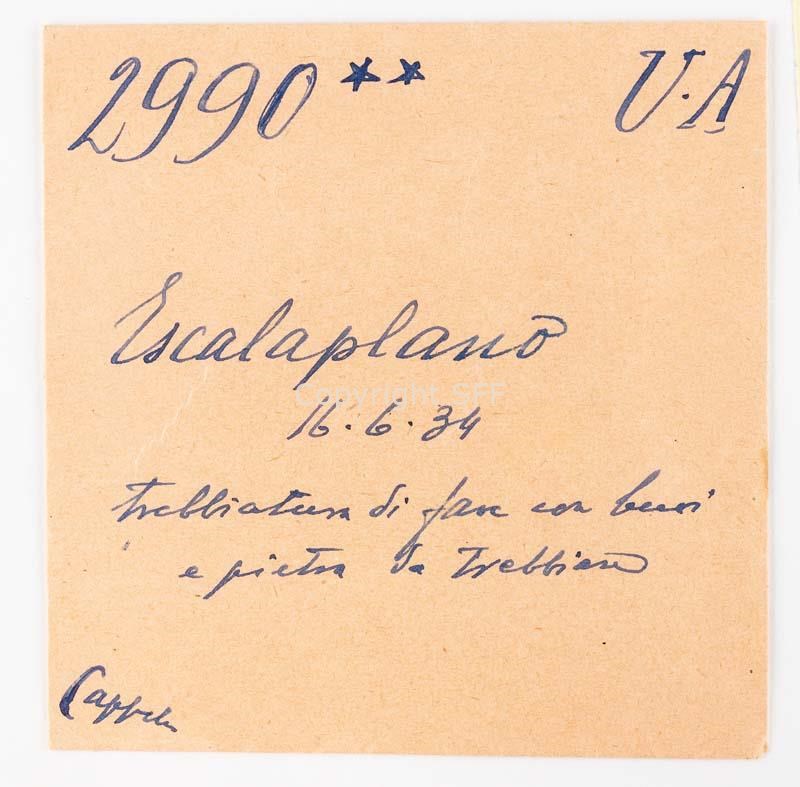 2990 ** U.A
Escalaplano
Copyright SFF
16.6.34
trebbiatura di fave con buoi
e pietra da trebbiare